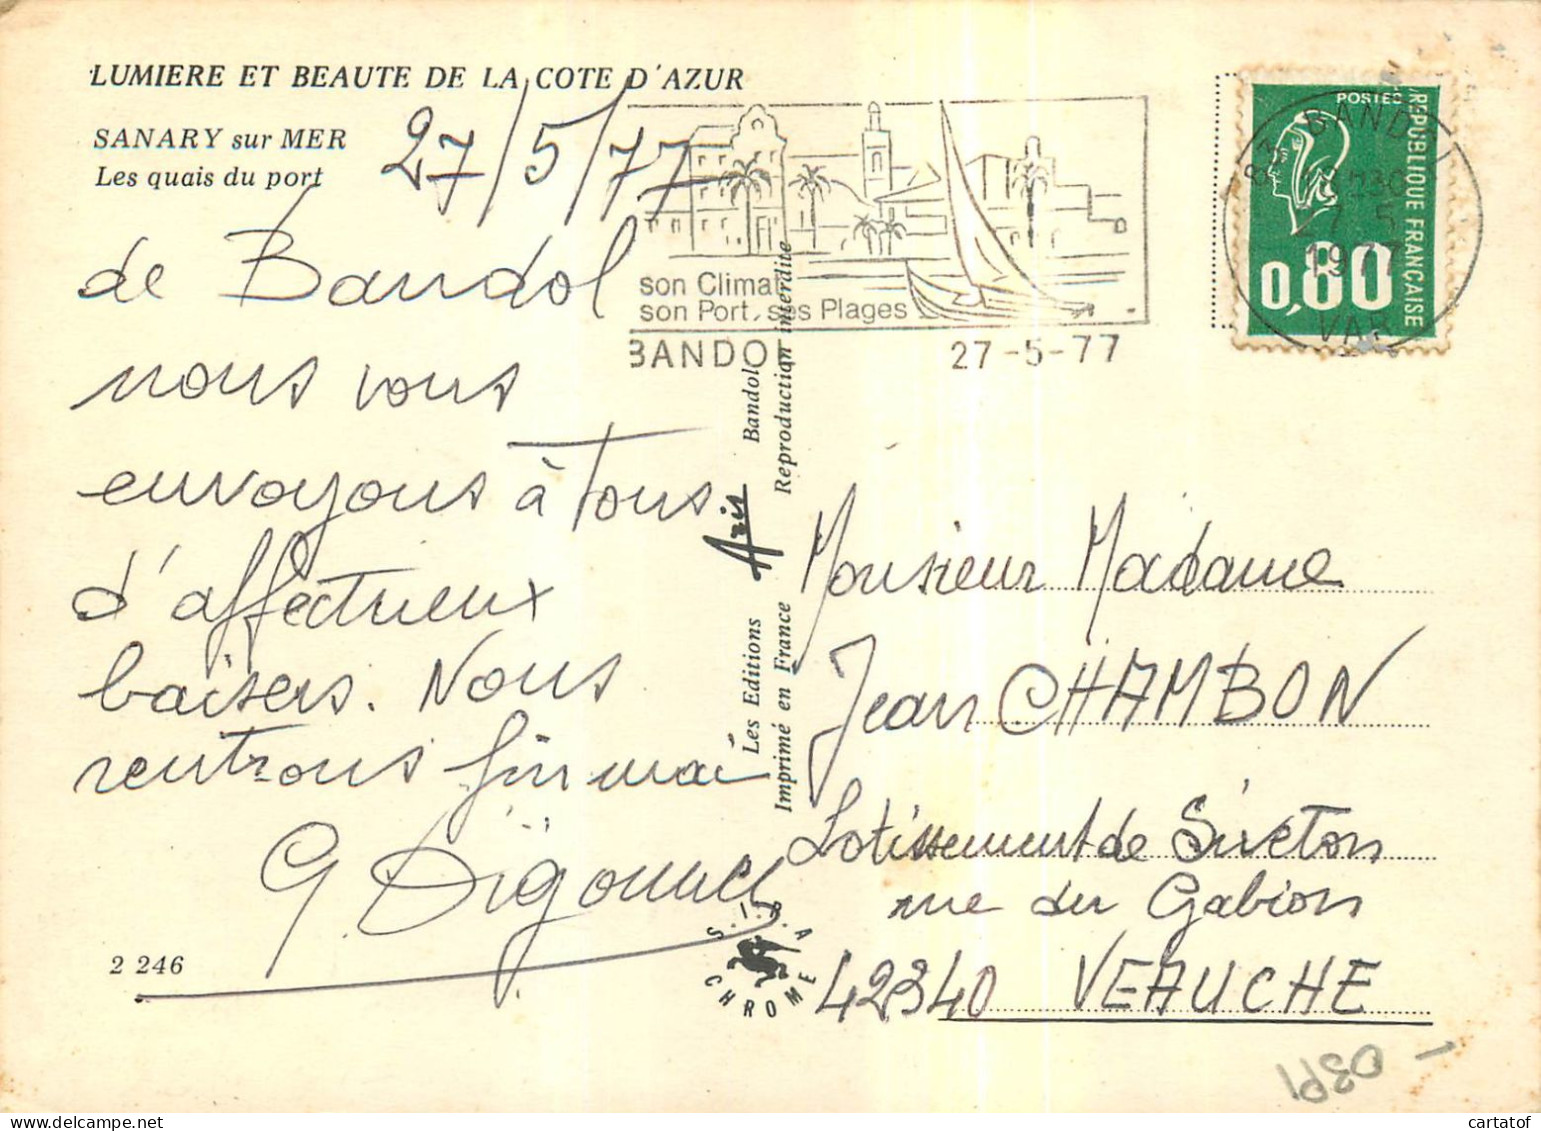 LUMIERE ET BEAUTE DE LA COTE D'AZUR
SANARY sur MER
Les quais du port
27/5/77
de Bandol
nous vous
envoyons à tous
d'affectueux
baisers. Nous
rentrons fin mai
G
2 246
son Climat
son Port, ses Plages
BANDOL
27-5-77
POSTES
REPUBLIQUE FRANÇAISE
0,80
83 BANDOL
27-5
1977
VAR
Les Editions Azis Bandol
Imprimé en France Reproduction interdite
S.I.R.A
CHROME
Monsieur Madame
Jean CHAMBON
Lotissement de Sireton
rue du Gabion
42340 VEAUCHE
cartatof